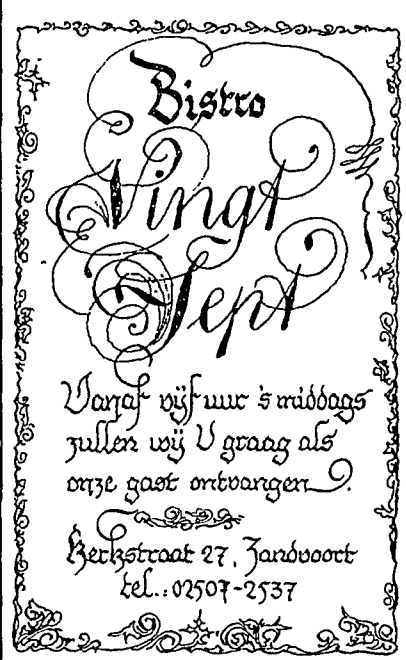 Bistro
Vingt
Sept
Vanaf vijf uur 's middags
zullen wij U graag als
onze gast ontvangen.
Kerkstraat 27, Zandvoort
tel.: 02507-2537